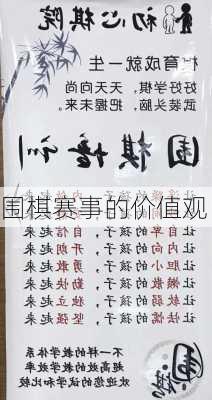 初心棋院
棋育成就一生
好好学棋,天天向尚
武装头脑,把握未来。
围棋培训
围棋赛事的价值观
让自卑的孩子,自信起来
让内向的孩子,开朗起来
让的孩子,勇敢起来
让的孩子,勤快起来
让的孩子,独立起来
让怯懦的孩子,坚强起来
不一样的教学体系
更高效的教学
欢迎您的试学和比较
围棋